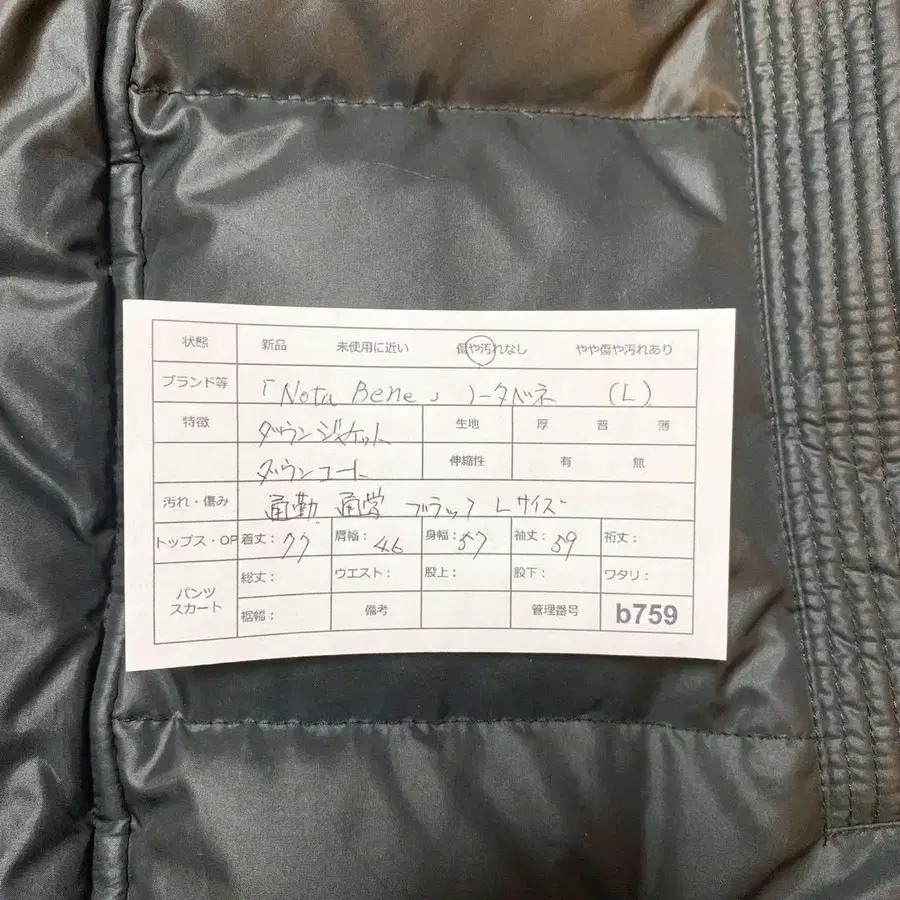 状態 新品 未使用に近い 傷や汚れなし やや傷や汚れあり
ブランド等 「Nota Bene」 ノータベネ (L)
特徴 ダウンジャケット 生地 厚 普 薄
ダウンコート 伸縮性 有 無
汚れ・傷み 通勤 通学 ブラック Lサイズ
トップス・OP 着丈:77 肩幅:46 身幅:57 袖丈:59 裄丈:
パンツ スカート 総丈: ウエスト: 股上: 股下: ワタリ:
裾幅: 備考 管理番号 b759